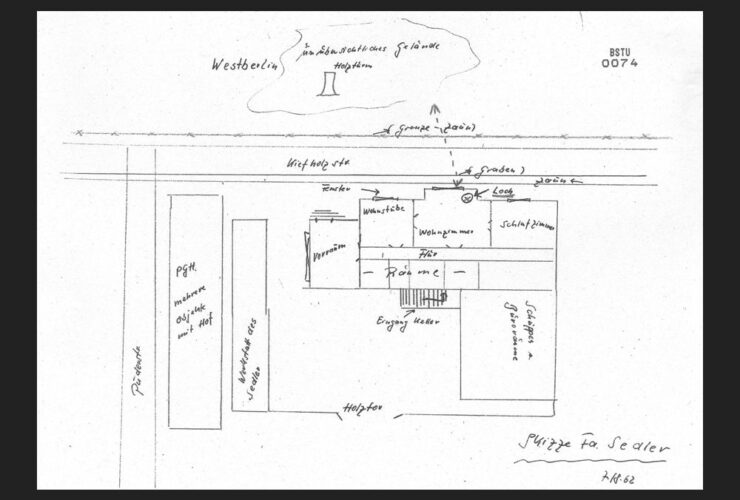 unübersichtliches Gelände
Westberlin
Holzturm
BSTU
0074
Grenze - (Zaun)
Kiefholzstr
(Graben)
Zaun
Fenster
Loch
Wohnstube
Wohnzimmer
Schlafzimmer
Vorraum
Flur
- Räume -
PGH.
mehrere
Objekte
mit Hof
Werkstatt des
Sedler
Eingang Keller
Schuppen u
Büroräume
Holztor
Skizze Fa. Sedler